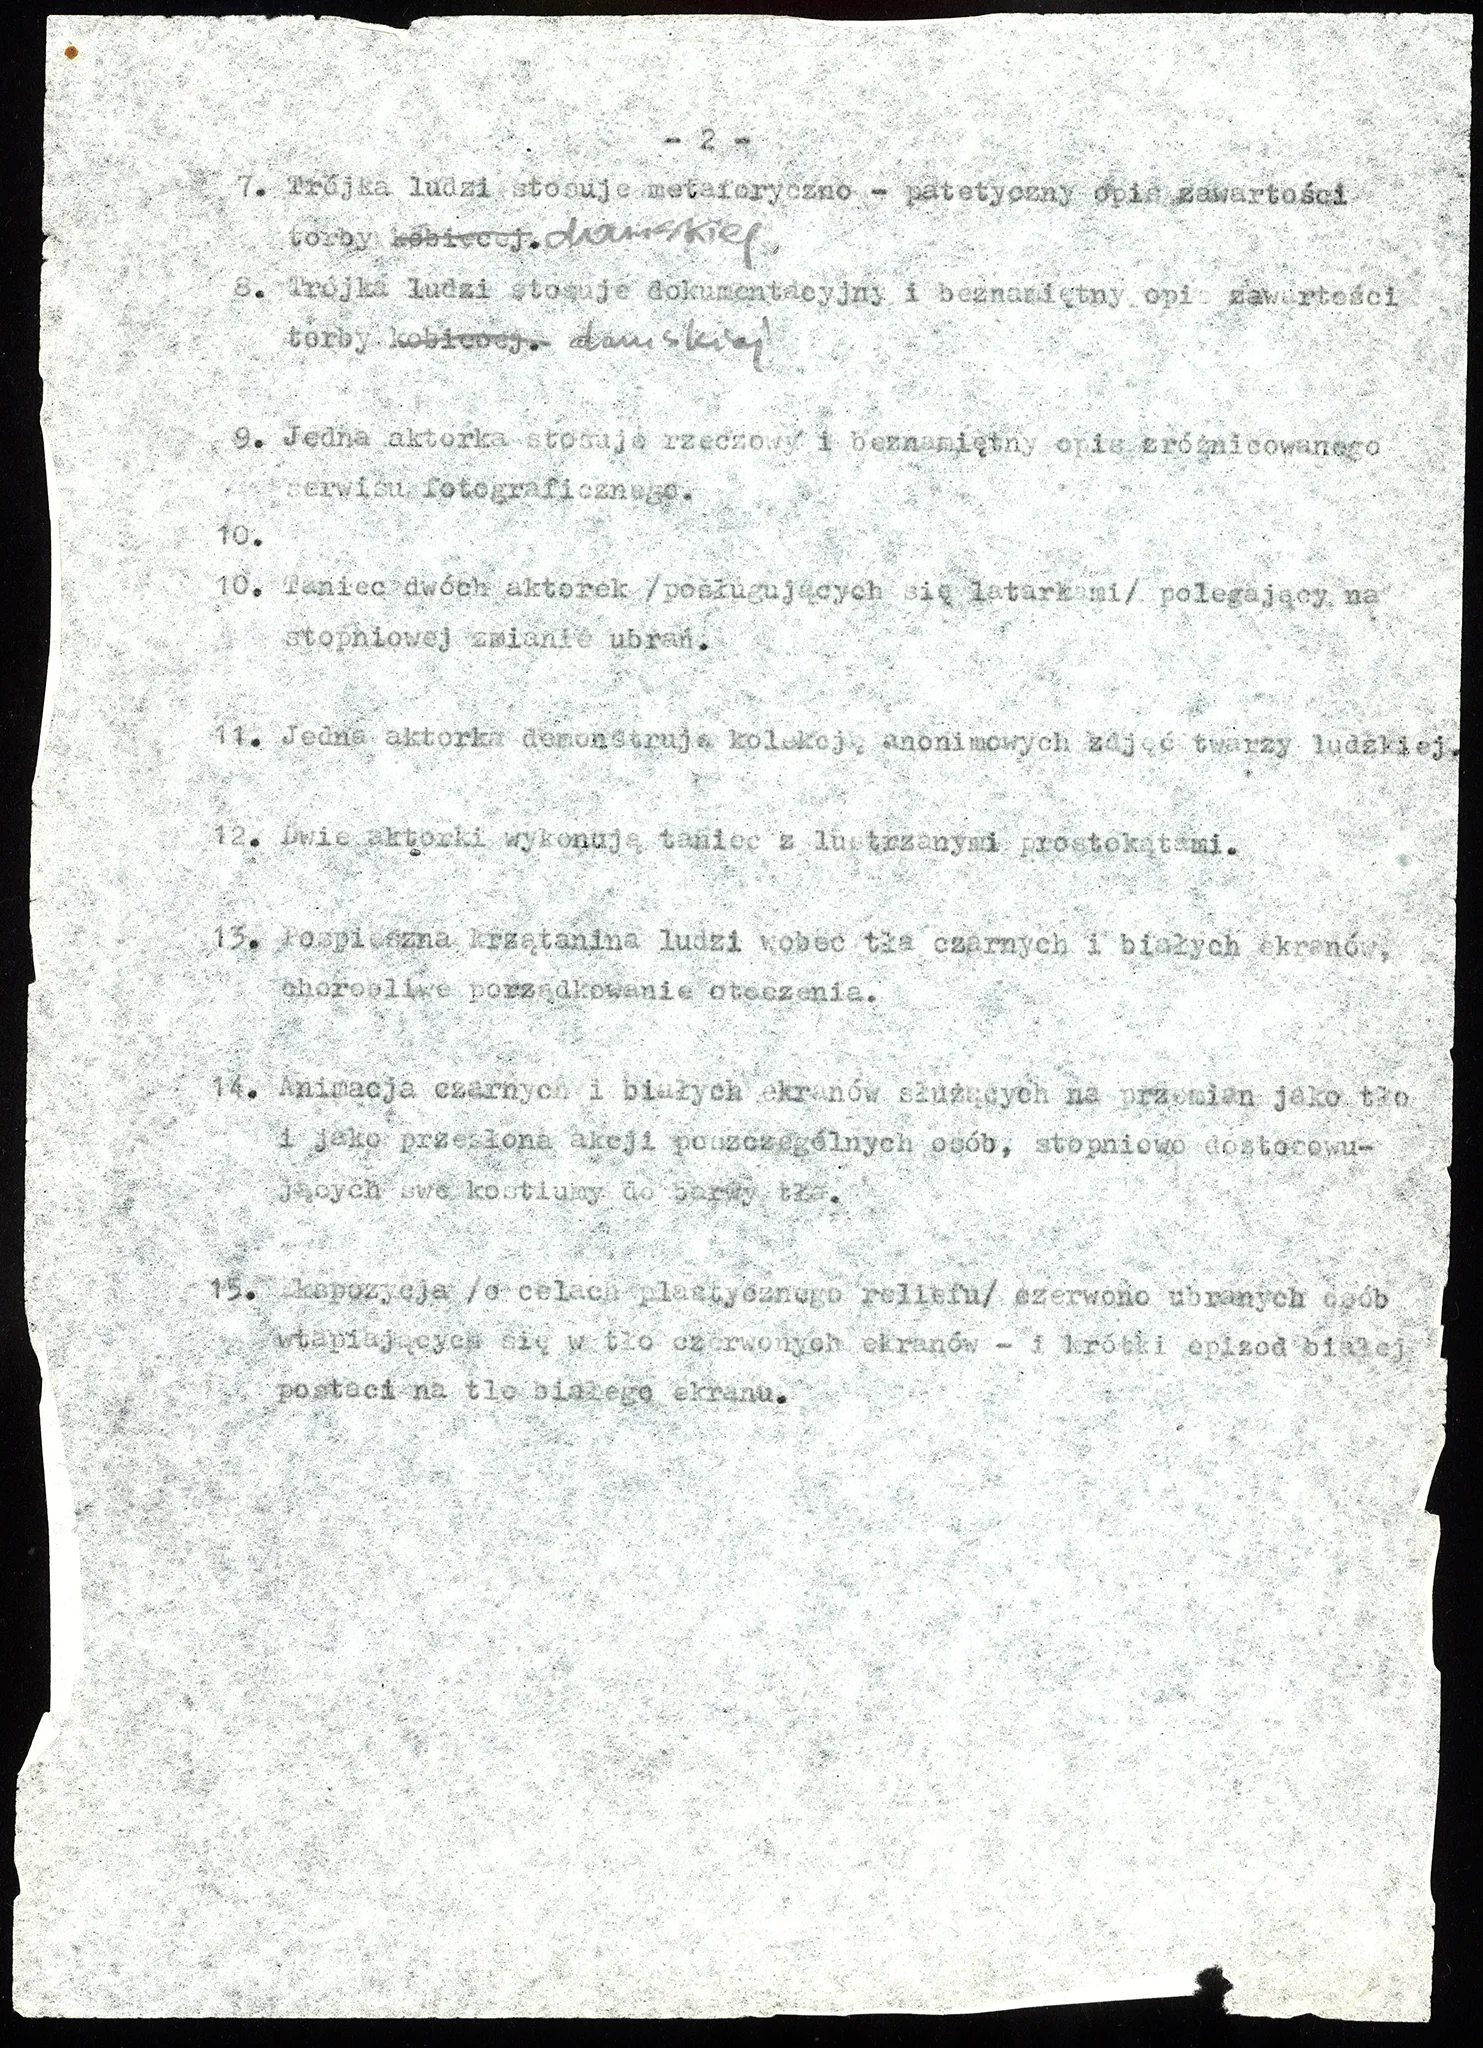 - 2 -
7. Trójka ludzi stosuje metaforyczno - patetyczny opis zawartości
torby kobiecej. damskiej
8. Trójka ludzi stosuje dokumentacyjny i beznamiętny opis zawartości
torby kobiecej. damskiej
9. Jedna aktorka stosuje rzeczowy i beznamiętny opis zróżnicowanego
serwisu fotograficznego.
10.
10. Taniec dwóch aktorek /posługujących się latarkami/ polegający na
stopniowej zmianie ubrań.
11. Jedna aktorka demonstruje kolekcję anonimowych zdjęć twarzy ludzkiej.
12. Dwie aktorki wykonują taniec z lustrzanymi prostokątami.
13. Pospieszna krzątanina ludzi wobec tła czarnych i białych ekranów,
chorobliwe porządkowanie otoczenia.
14. Animacja czarnych i białych ekranów służących na przemian jako tło
i jako przesłona akcji poszczególnych osób, stopniowo dostosowu-
jących swe kostiumy do barwy tła.
15. Ekspozycja /o celach plastycznego reliefu/ czerwono ubranych osób
wtapiających się w tło czerwonych ekranów - i krótki epizod białej
postaci na tle białego ekranu.